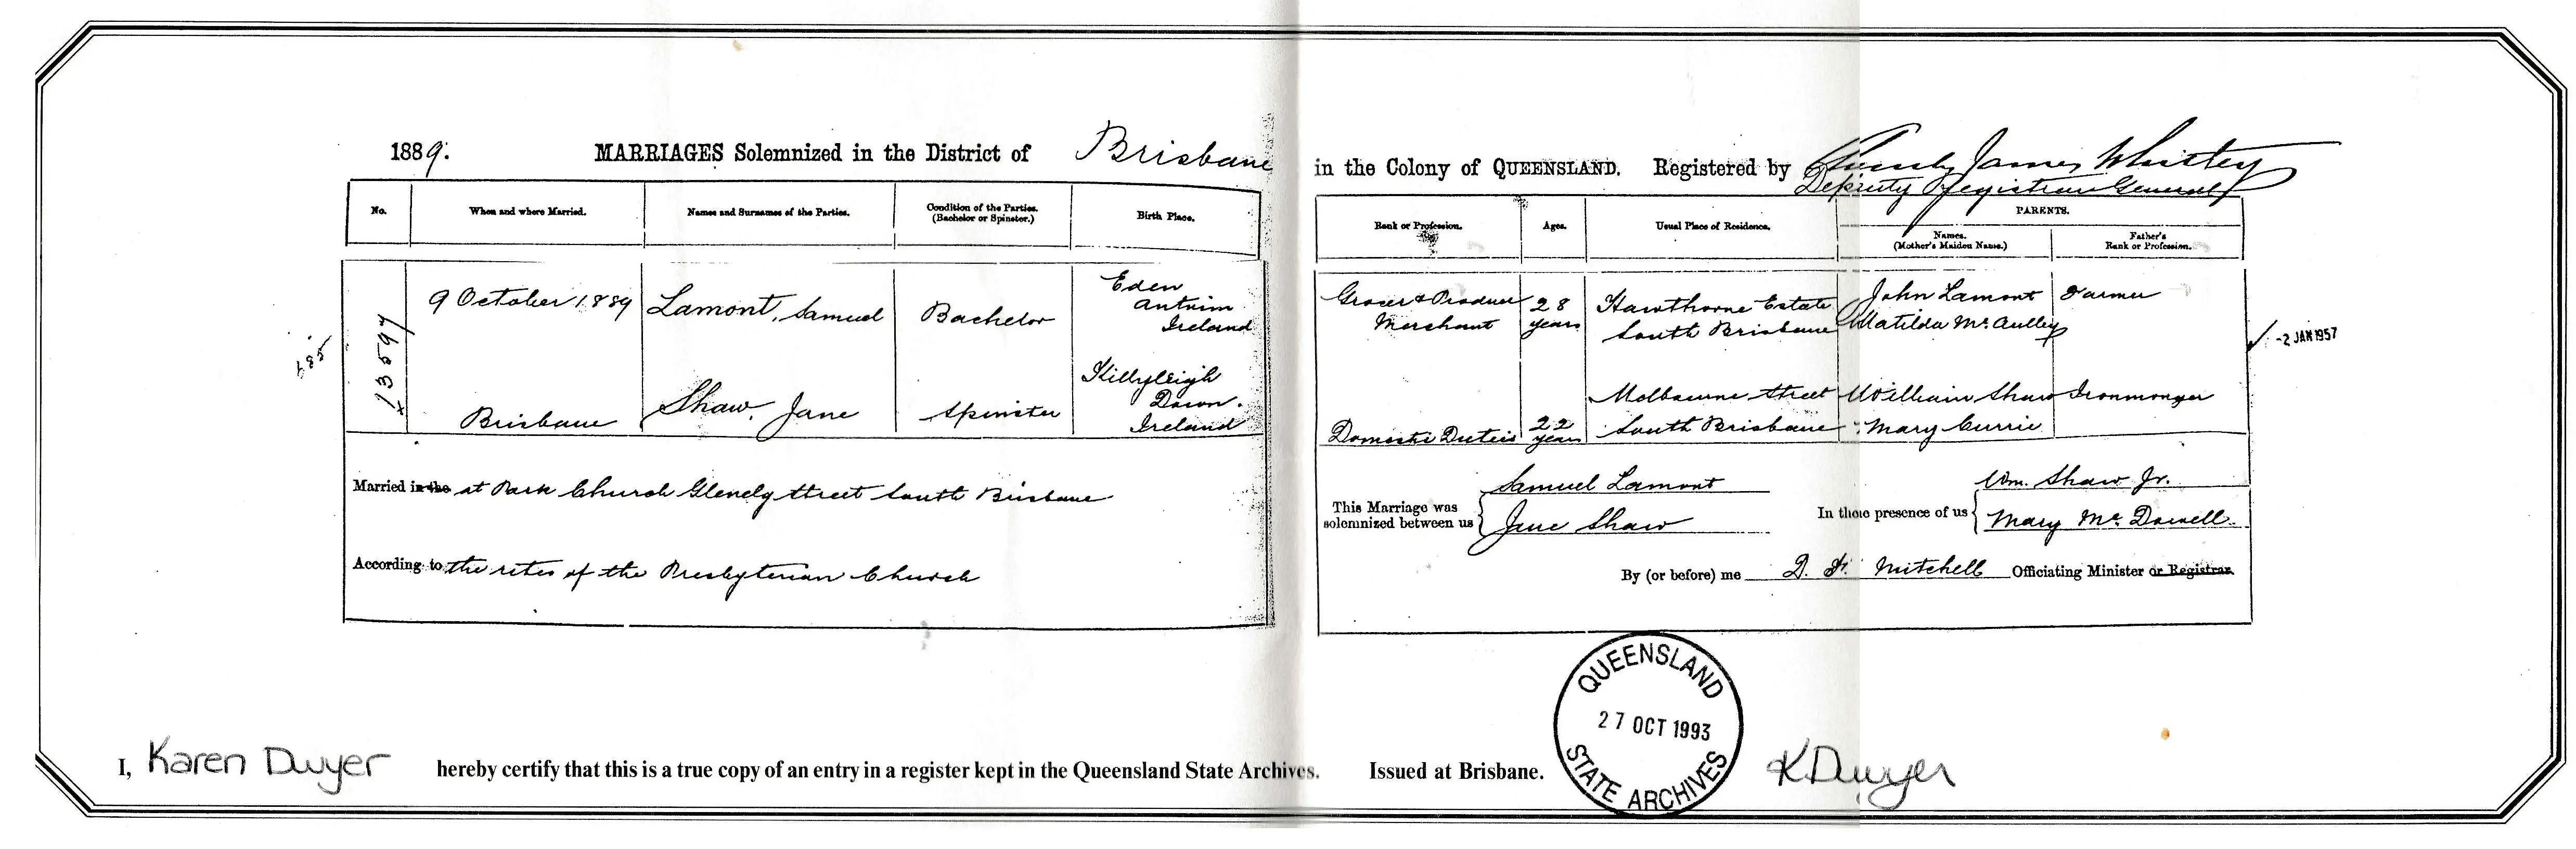 1889. MARRIAGES Solemnized in the District of Brisbane in the Colony of QUEENSLAND. Registered by James Whistey
Deputy Registrar General
No. When and where Married. Names and Surnames of the Parties. Condition of the Parties. (Bachelor or Spinster.) Birth Place. Rank or Profession. Ages. Usual Place of Residence. PARENTS. Names. (Mother's Maiden Name.) Father's Rank or Profession.
585
13597
9 October 1889
Lamont, Samuel
Bachelor
Eden
Antrim
Ireland
Grocer & Produce
Merchant
28
years
Hawthorne Estate
South Brisbane
John Lamont
Matilda McAulley
Farmer
-2 JAN 1957
Brisbane
Shaw, Jane
Spinster
Killyleigh
Down.
Ireland
Domestic Duties
22
years
Melbourne Street
South Brisbane
William Shaw
Mary Currie
Ironmonger
Married in the at Park Church Glenelg Street South Brisbane
According to the rites of the Presbyterian Church
This Marriage was
solemnized between us
Samuel Lamont
Jane Shaw
In the presence of us
Wm. Shaw Jr.
Mary McDowell.
By (or before) me D. F. Mitchell Officiating Minister or Registrar.
I, Karen Dwyer hereby certify that this is a true copy of an entry in a register kept in the Queensland State Archives. Issued at Brisbane.
QUEENSLAND
27 OCT 1993
STATE ARCHIVES
K Dwyer